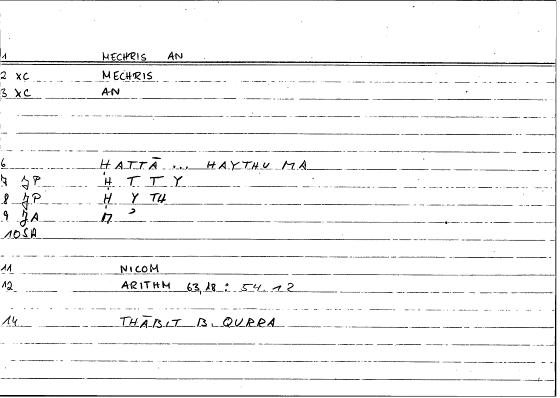 1 MECHRIS AN
2 XC MECHRIS
3 XC AN
6 ḤATTĀ ... ḤAYTHU MA
7 JP Ḥ T T Y
8 JP Ḥ Y TH
9 JA M ʾ
10 SA
11 NICOM
12 ARITHM 63,18 : 54.12
14 THĀBIT B. QURRA